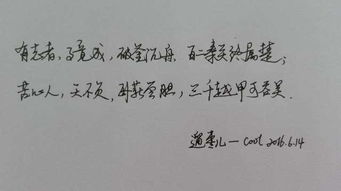 有志者,事竟成,破釜沉舟,百二秦关终属楚;
苦心人,天不负,卧薪尝胆,三千越甲可吞吴.
逍枣儿—cool 2016.6.14